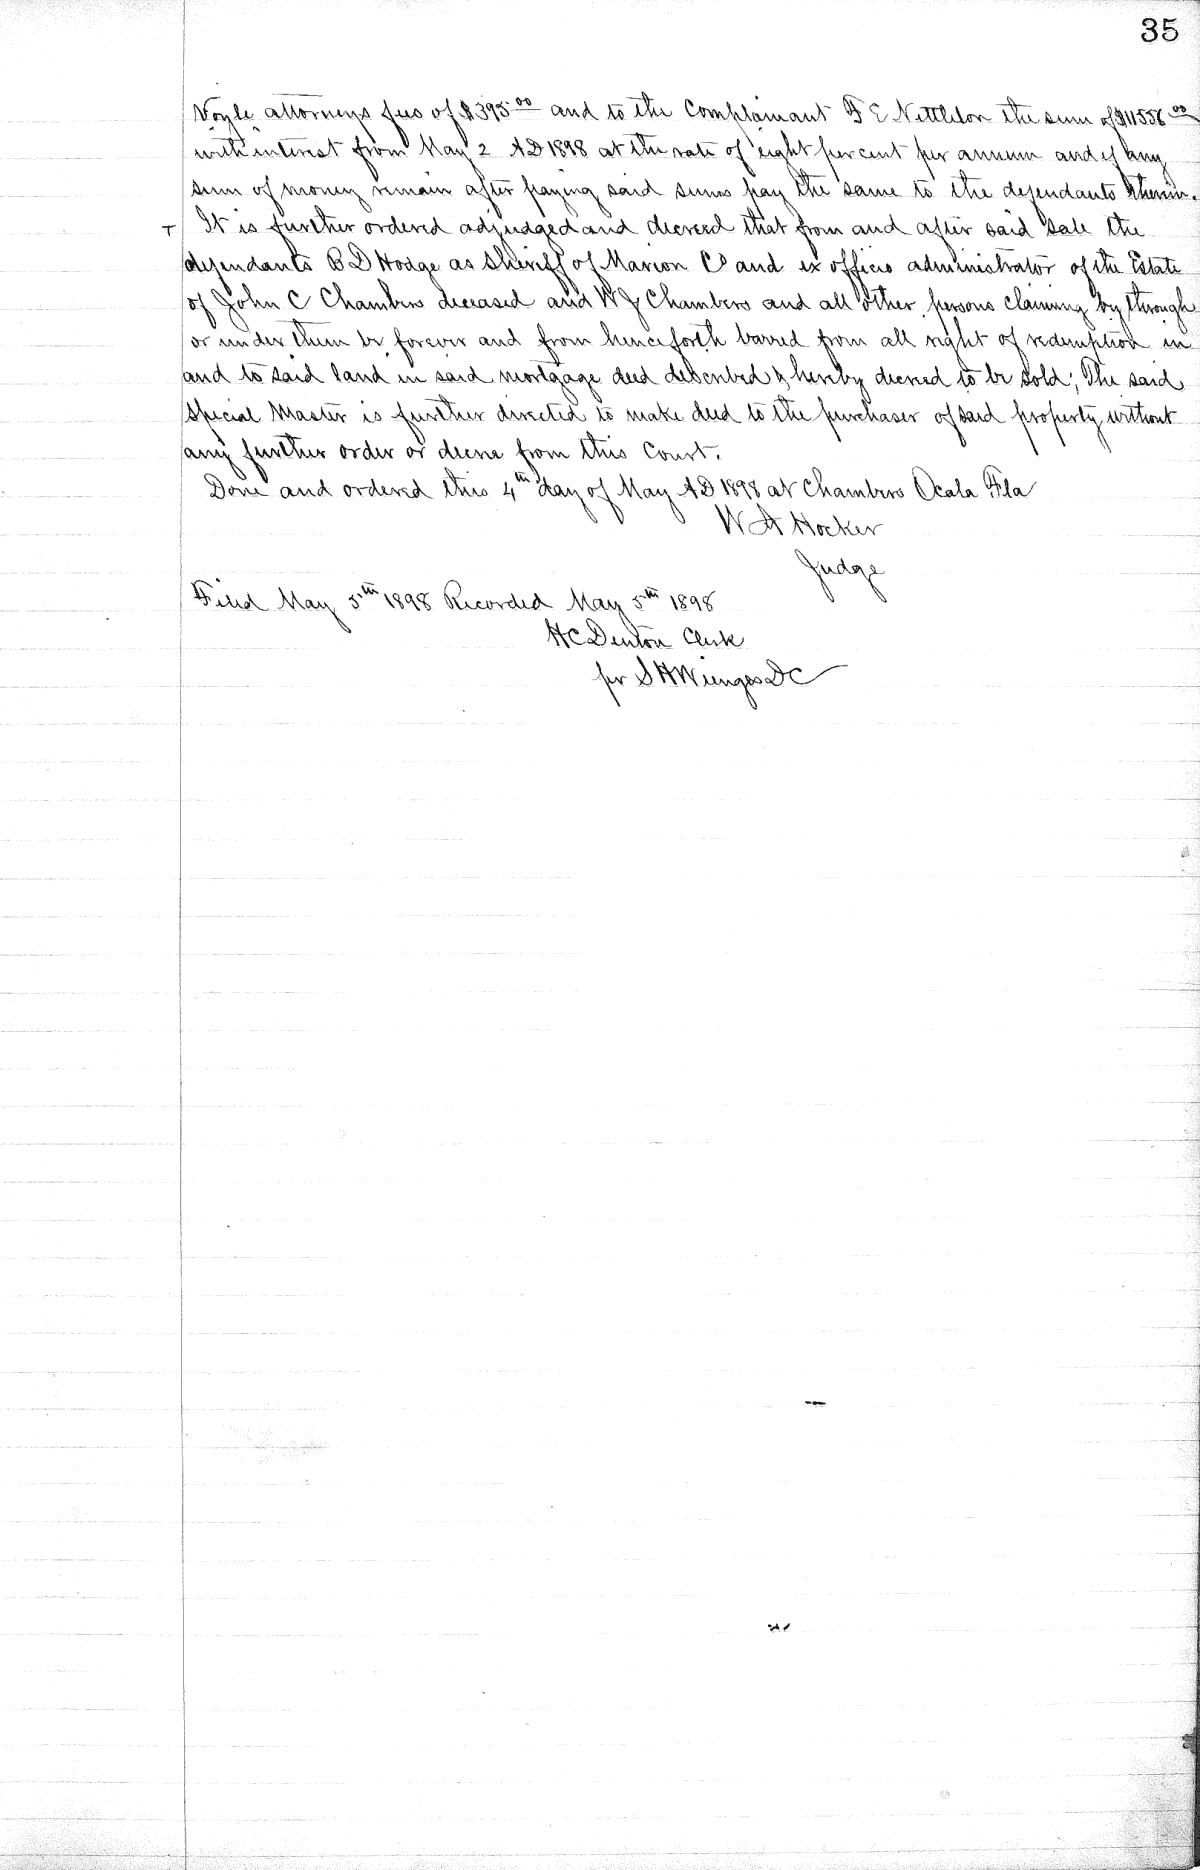 35
Voyle attorneys fees of $395.00 and to the Complainant F E Nettleton the sum of $11556.00
with interest from May 2 AD 1898 at the rate of eight per cent per annum and if any
sum of money remain after paying said sums pay the same to the defendants therein.
T It is further ordered adjudged and decreed that from and after said sale the
defendants B D Hodge as Sheriff of Marion Co and ex officio administrator of the Estate
of John C Chambers deceased and W J Chambers and all other persons claiming by through
or under them be forever and from henceforth barred from all right of redemption in
and to said land in said mortgage deed described & hereby decreed to be sold; The said
Special Master is further directed to make deed to the purchaser of said property without
any further order or decree from this Court.
Done and ordered this 4th day of May AD 1898 at Chambers Ocala Fla
W A Hocker
Judge
Filed May 5th 1898 Recorded May 5th 1898
H C Denton Clerk
per S H Wienges DC